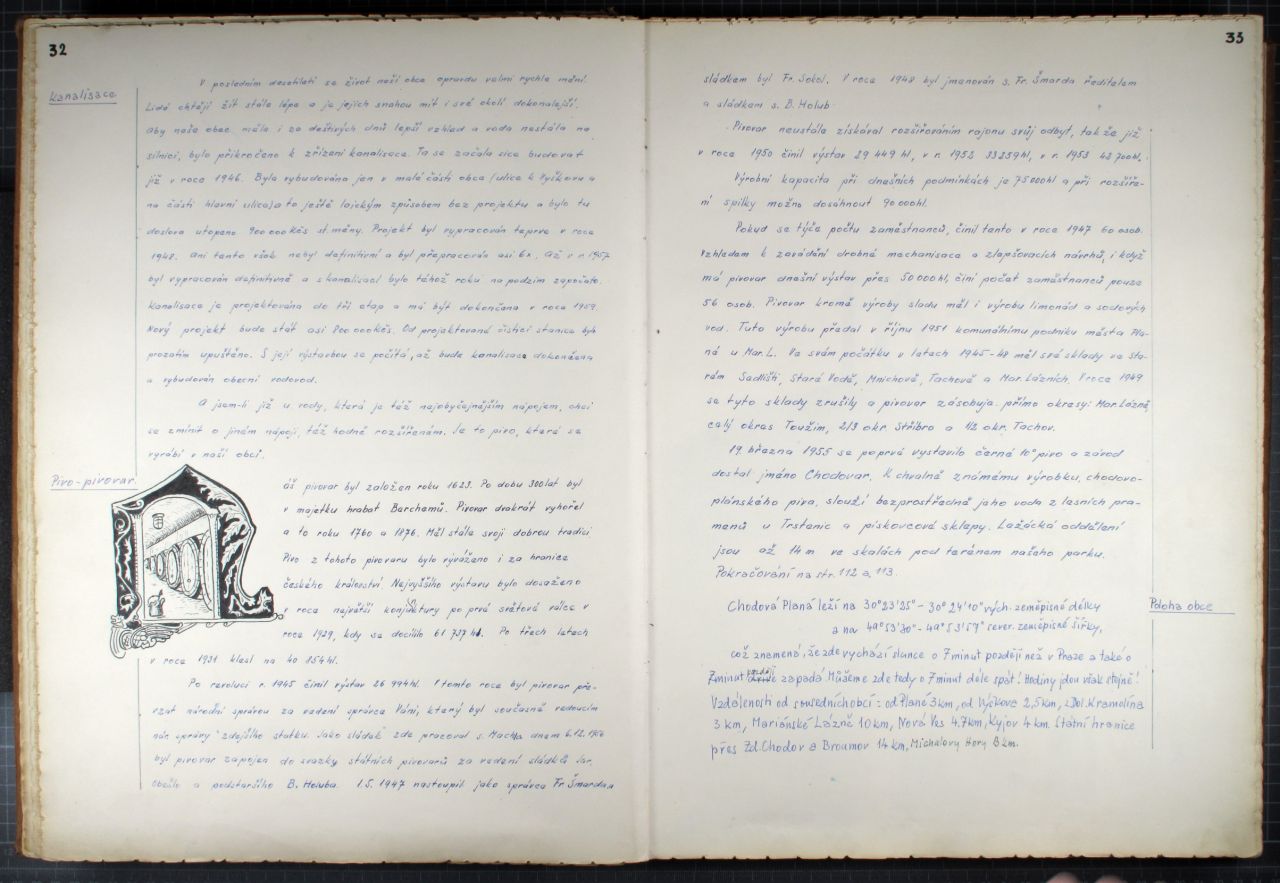 32
kanalisace
V posledním desetiletí se život naší obce opravdu velmi rychle mění.
Lidé chtějí žít stále lépe a je jejich snahou mít i své okolí dokonalejší.
Aby naše obec měla i za deštivých dnů lepší vzhled a voda nestála na
silnici, bylo přikročeno k zřízení kanalisace. Ta se začala sice budovat
již v roce 1946. Byla vybudována jen v malé části obce (ulice k Výškovu a
na části hlavní ulice) a to ještě laickým způsobem bez projektu a bylo tu
doslova utopeno 900 000 Kčs st. měny. Projekt byl vypracován teprve v roce
1948. Ani tento však nebyl definitivní a byl přepracován asi 6x. Až v r. 1957
byl vypracován definitivně a s kanalisací bylo téhož roku na podzim započato.
Kanalisace je projektována do tří etap a má být dokončena v roce 1959.
Nový projekt bude stát asi 800 000 Kčs. Od projektované čistící stanice bylo
prozatím upuštěno. S její výstavbou se počítá, až bude kanalisace dokončena
a vybudován obecní vodovod.
A jsem-li již u vody, která je též nejobyčejnějším nápojem, chci
se zmínit o jiném nápoji, též hodně rozšířeném. Je to pivo, které se
vyrábí v naší obci.
Pivo-pivovar.
N
áš pivovar byl založen roku 1623. Po dobu 300 let byl
v majetku hrabat Berchemů. Pivovar dvakrát vyhořel
a to roku 1760 a 1876. Měl stále svoji dobrou tradici.
Pivo z tohoto pivovaru bylo vyváženo i za hranice
českého království. Nejvyššího výstavu bylo dosaženo
v roce největší konjuktury po prvé světové válce v
roce 1929, kdy se docílilo 61 737 hl. Po třech letech
v roce 1931 klesl na 40 854 hl.
Po revoluci r. 1945 činil výstav 26 994 hl. V tomto roce byl pivovar pře-
vzat národní správou za vedení správce Váni, který byl současně vedoucím
nár. správy zdejšího statku. Jako sládek zde pracoval s. Macha dnem 6.12.
byl pivovar zapojen do svazku státních pivovarů za vedení sládků Jar.
a podstaršího B. Holuba. 1.5. 1947 nastoupil jako správce Fr. Šmarda a
33
sládkem byl Fr. Sokol. V roce 1948 byl jmenován s. Fr. Šmarda ředitelem
a sládkem s. B. Holub.
Pivovar neustále získával rozšiřováním rajonu svůj odbyt, takže již
v roce 1950 činil výstav 29 449 hl, v r. 1952 33259 hl, v r. 1953 42 700 hl.
Výrobní kapacita při dnešních podmínkách je 75 000 hl a při rozšíře-
ní spilky možno dosáhnout 90 000 hl.
Pokud se týče počtu zaměstnanců, činil tento v roce 1947 60 osob.
Vzhledem k zavádění drobné mechanisace a zlepšovacích návrhů, i když
má pivovar dnešní výstav přes 50 000 hl, činí počet zaměstnanců pouze
56 osob. Pivovar kromě výroby sladu měl i výrobu limonád a sodových
vod. Tuto výrobu předal v říjnu 1951 komunálnímu podniku města Pla-
ná u Mar. L. Ve svém počátku v letech 1945-48 měl své sklady ve Sta-
rém Sedlišti, Staré Vodě, Mnichově, Tachově a Mar. Lázních. V roce 1949
se tyto sklady zrušily a pivovar zásobuje přímo okresy: Mar. Lázně,
celý okres Toužim, 2/3 okr. Stříbro a 1/2 okr. Tachov.
19. března 1955 se poprvé vystavilo černé 10° pivo a závod
dostal jméno Chodovar. K chvalně známému výrobku, chodovo-
plánského piva, slouží bezprostředně jeho voda z lesních pra-
menů u Trstenic a pískovcové sklepy. Ležácká oddělení
jsou až 14 m ve skalách pod terénem našeho parku.
Pokračování na str. 112 a 113.
Poloha obce
Chodová Planá leží na 30°23'25" - 30°24'10" vých. zeměpisné délky
a na 49°53'30" - 49°53'57" sever. zeměpisné šířky,
což znamená, že zde vychází slunce o 7 minut později než v Praze a také o
7 minut později zapadá. Můžeme zde tedy o 7 minut déle spát! Hodiny jdou však stejně!
Vzdálenosti od sousedních obcí: od Plané 3 km, od Výškova 2,5 km, z Dol. Kramolína
3 km, Mariánské Lázně 10 km, Nová Ves 4.7 km, Kyjov 4 km. Státní hranice
přes Zd. Chodov a Broumov 14 km, Michalovy Hory 8 km.